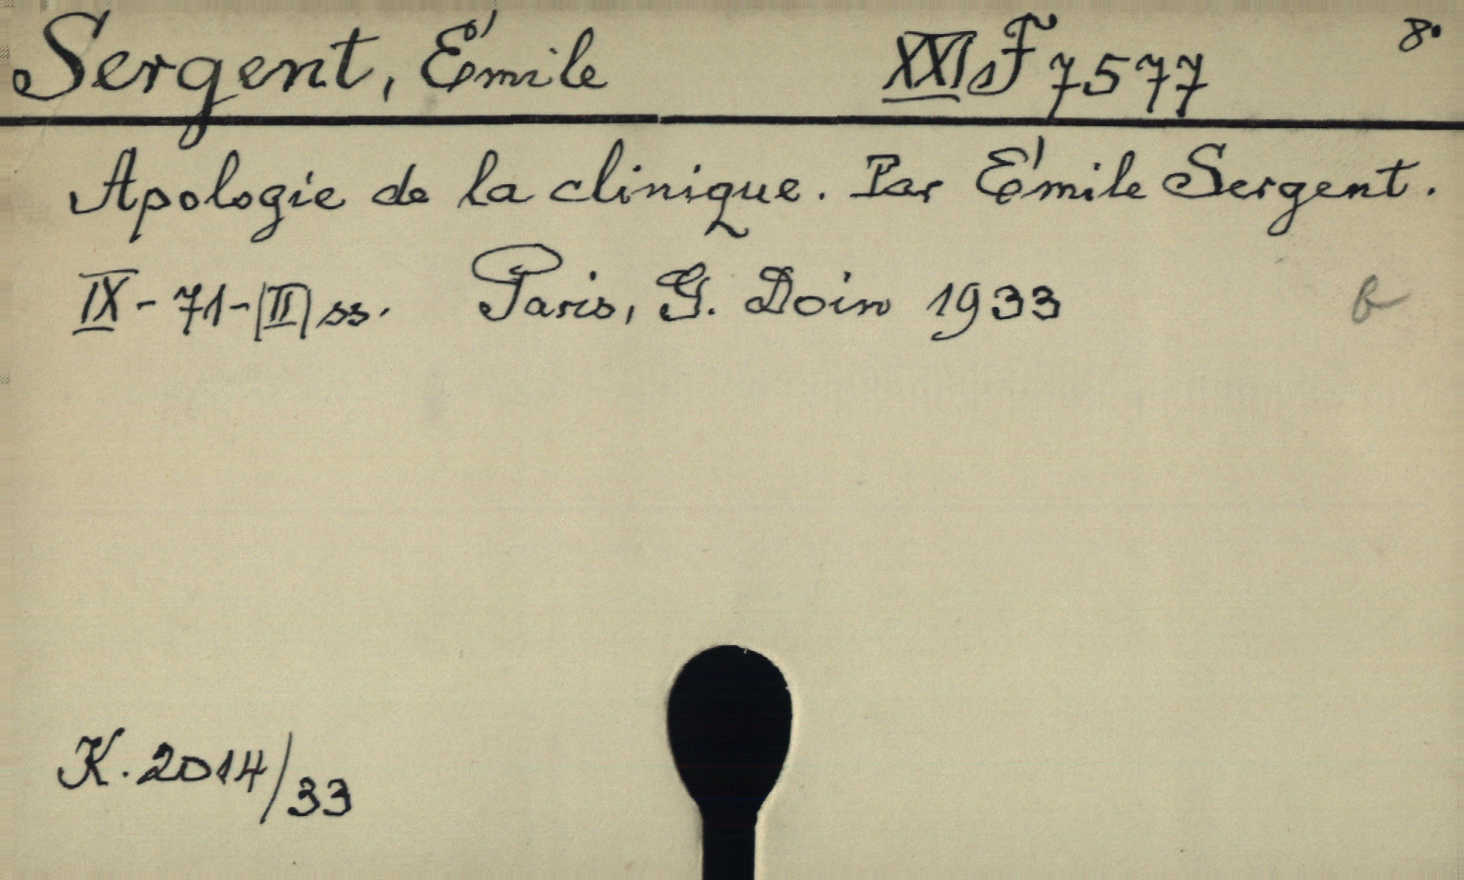 Sergent, Émile XXI s F 7577 8°
Apologie de la clinique. Par Émile Sergent.
IX-71-(II) ss. Paris, G. Doin 1933
K. 2014/33